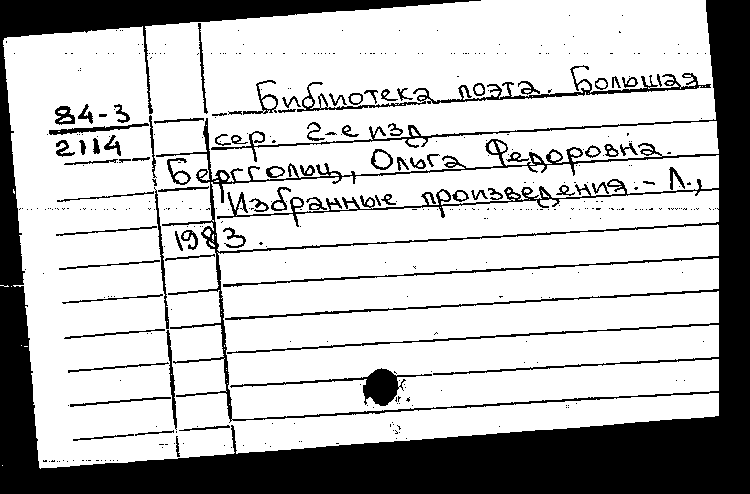 Библиотека поэта. Большая
84-3
2114
сер. 2-е изд
Берггольц, Ольга Федоровна.
Избранные произведения. - Л.,
1983.